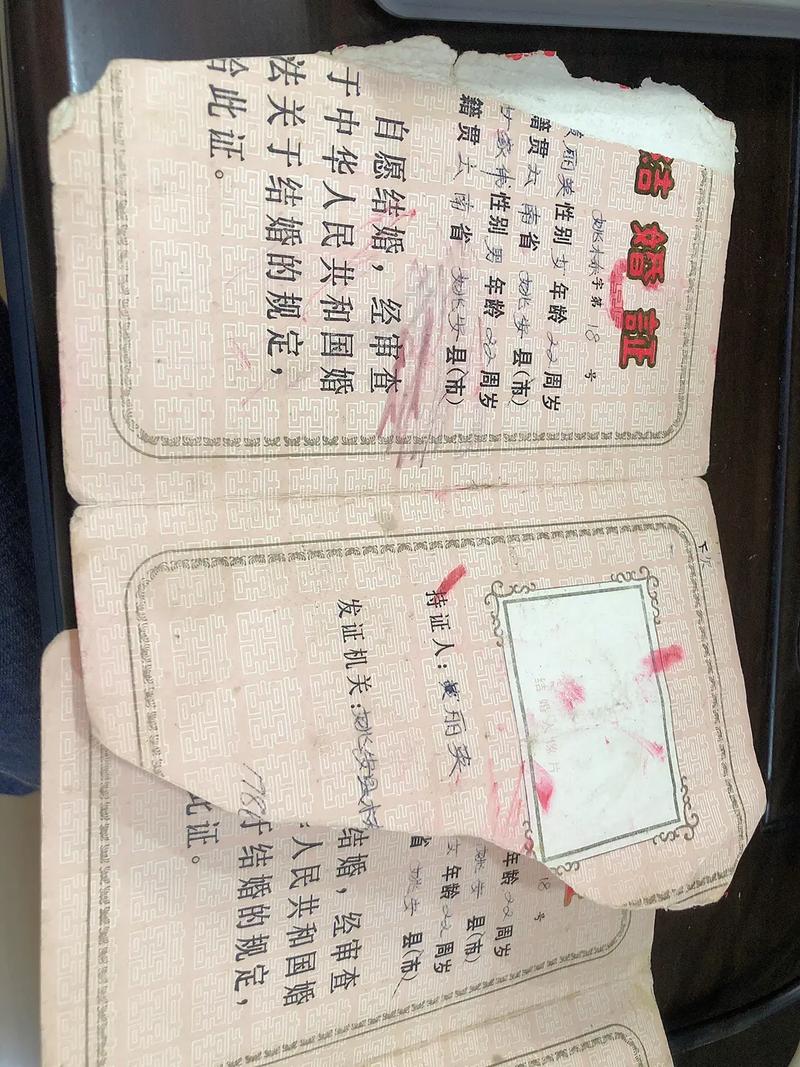 结婚证
字第 18 号
丽英 性别 女 年龄 22 周岁
籍贯 云南省 姚安 县(市)
性别 男 年龄 22 周岁
籍贯 云南省 姚安 县(市)
自愿结婚，经审查
于中华人民共和国婚
法关于结婚的规定，
给此证。
结婚人像片
持证人：丽英
发证机关：姚安县
18 号
年龄 22 周岁
姚安 县(市)
女 年龄 22 周岁
省 姚安 县(市)
结婚，经审查
人民共和国婚
于结婚的规定，
此证。